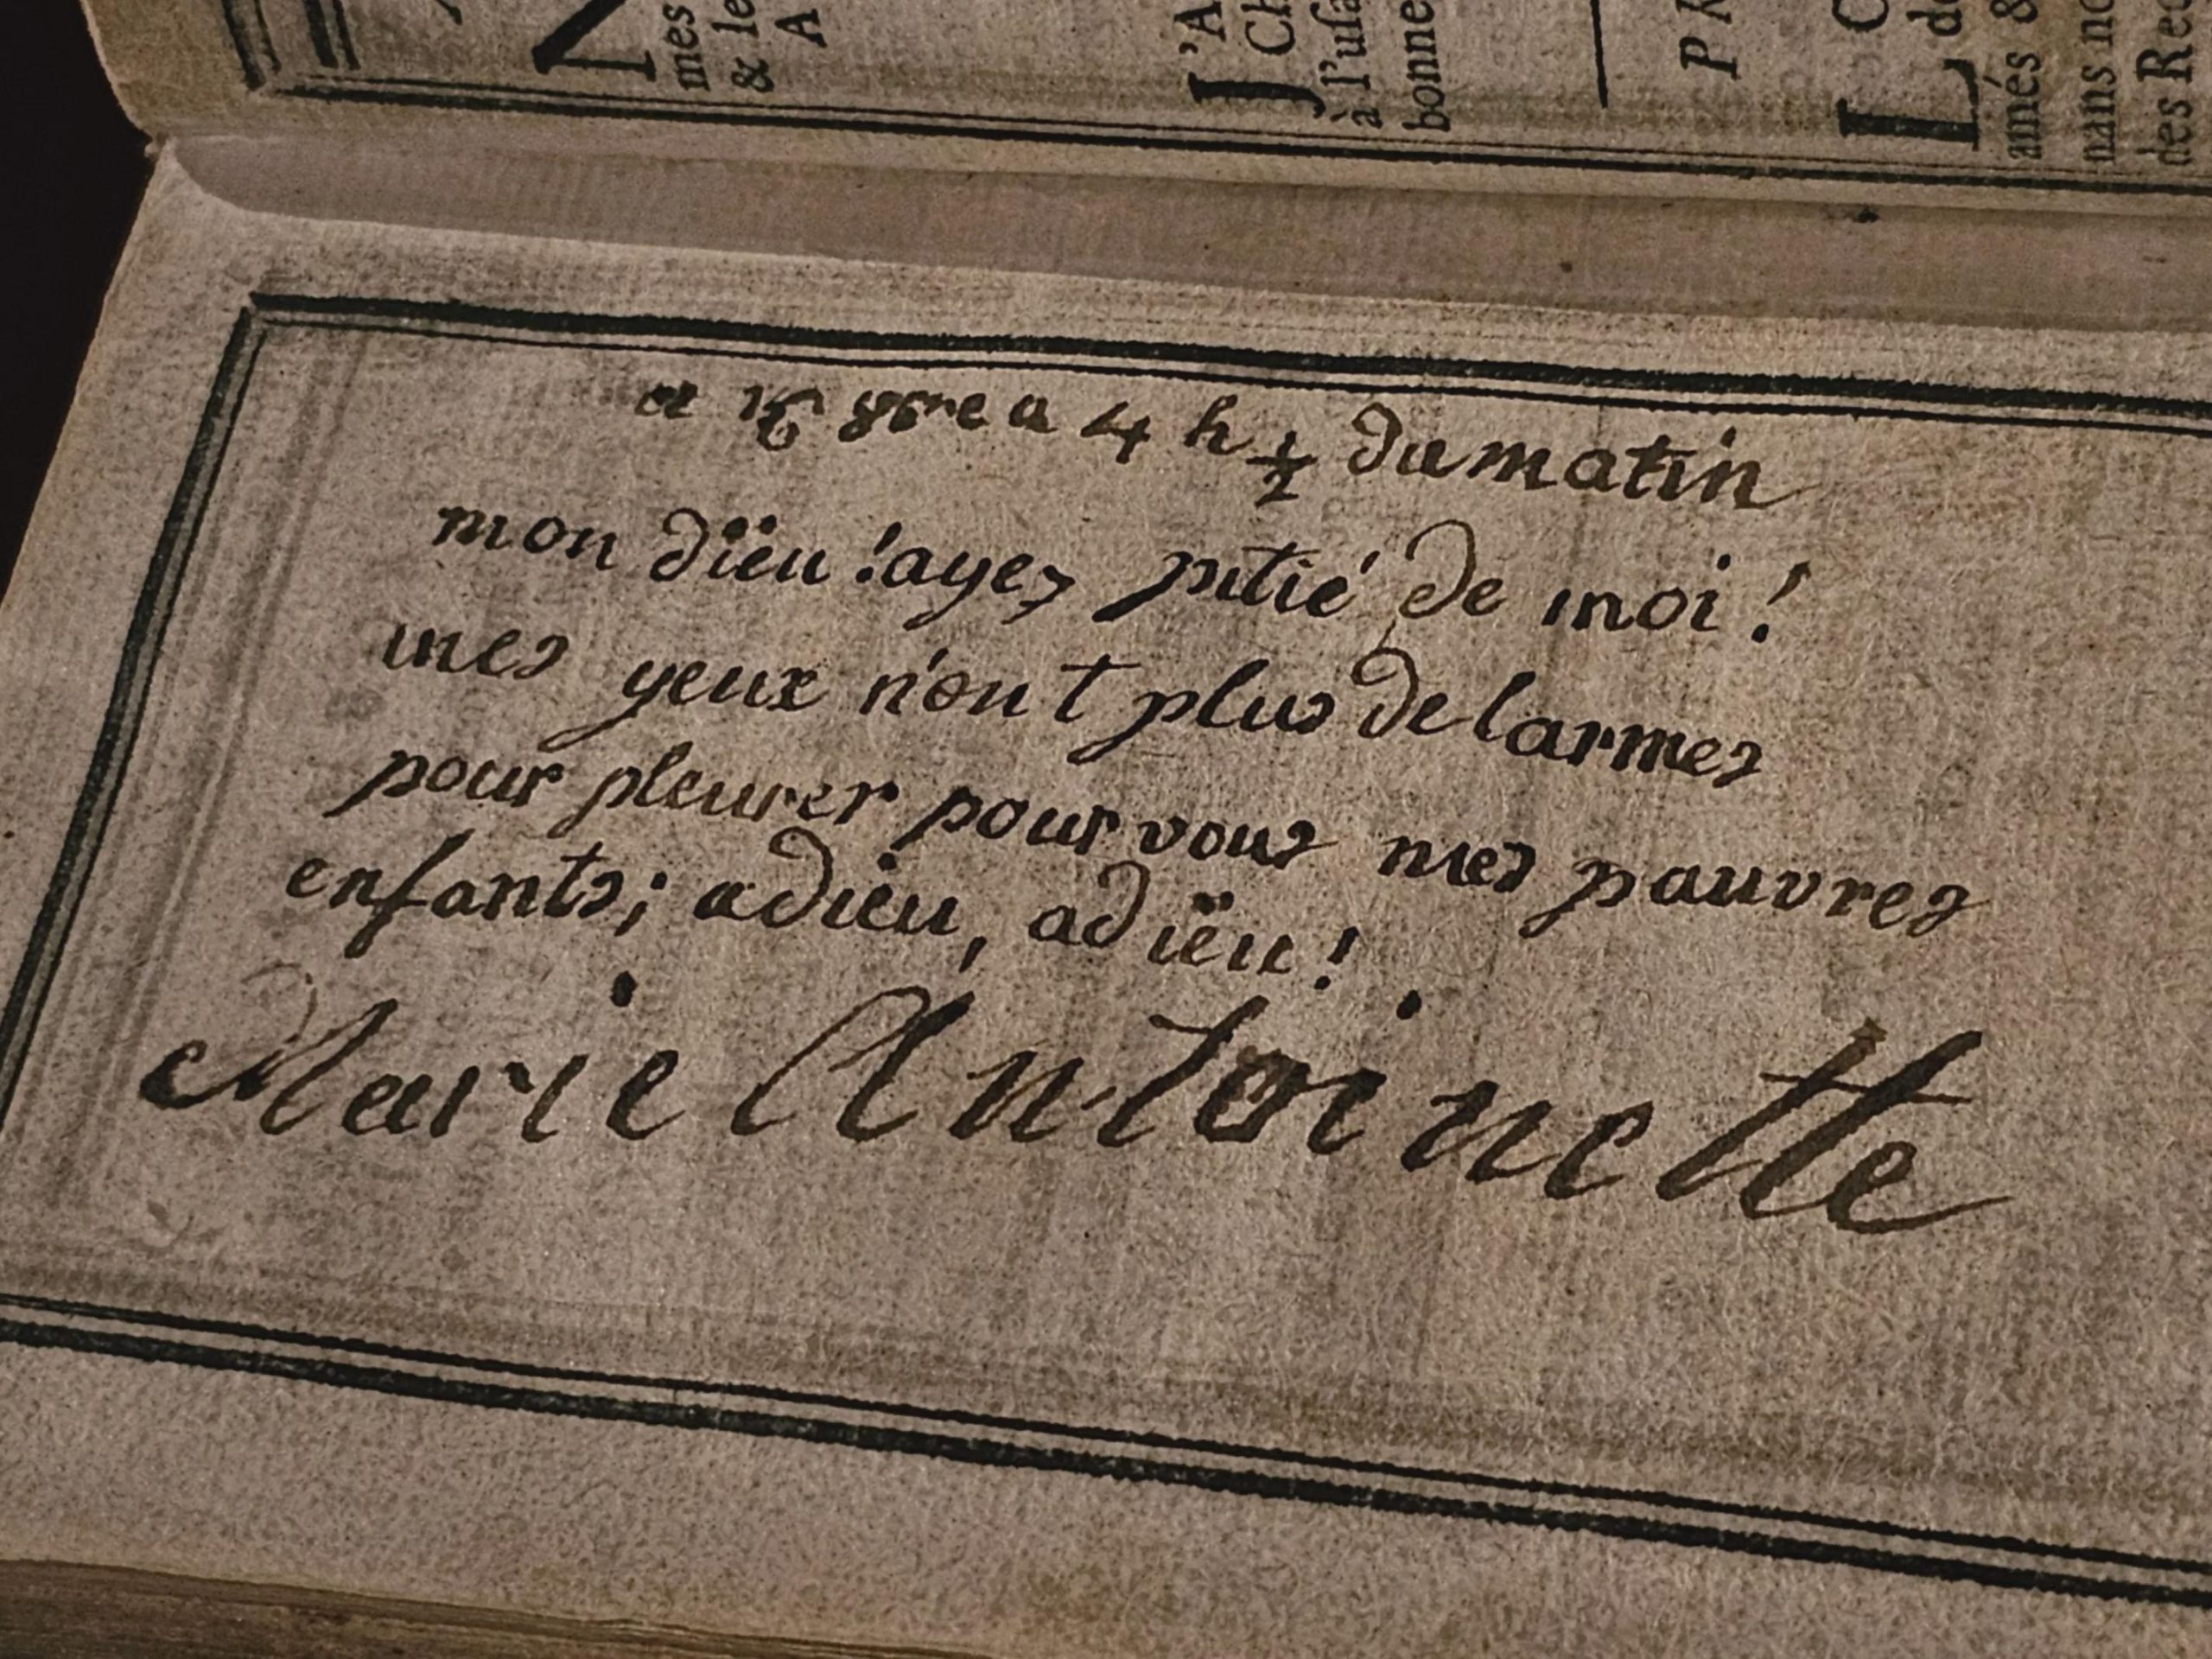 mes
& le
A
L'A
Ch
à l'uſa
bonne
PR
L C
de
amés &
nans no
des Rec
ce 16 8bre a 4 h ½ du matin
mon dïeu ! ayez pitié de moi !
mes yeux n'ont plus de larmes
pour pleurer pour vous mes pauvres
enfants ; adieu, adïeu !
Marie Antoinette